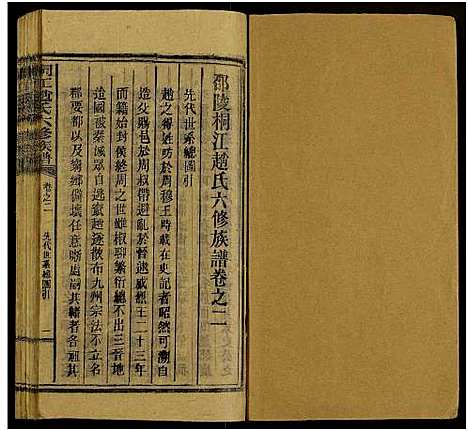 邵陵桐江趙氏六修族譜卷之二
先代世系總圖引
趙之得姓昉於周穆王時載在史記者昭然可溯自
造父賜邑於趙周叔帶避亂於晉逮威烈王二十三年
而籍始封侯終周之世雖椒聊繁衍總不出三晉地
造國被秦滅眾自逃竄趙遂散布九州宗法不立名
都要以及嶺鄉僻壤任意斯處嗣其緒者各祖其
桐江趙氏六修族譜
卷之二
先代世系總圖引
一